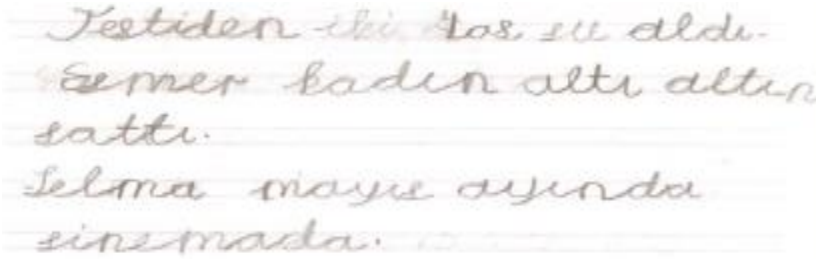 Testiden iki tas su aldı.
Semer kadın altı altın
sattı.
Selma mayıs ayında
sinemada.